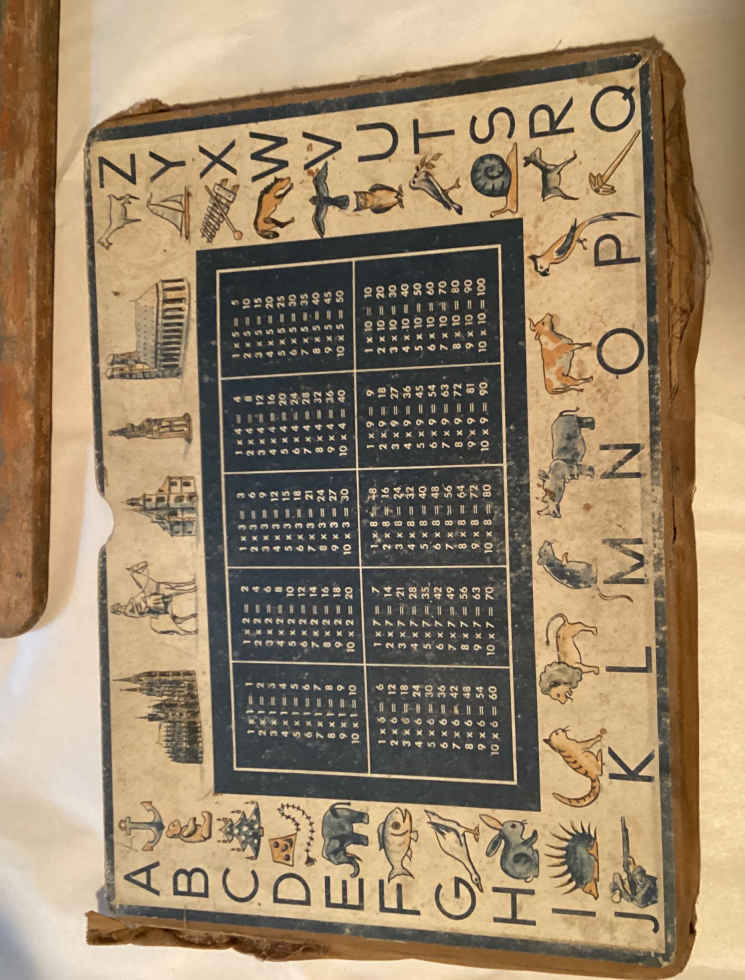 A
B
C
D
E
F
G
H
I
J
K L M N O P Q
R
S
T
U
V
W
X
Y
Z
1 x 1 = 1
2 x 1 = 2
3 x 1 = 3
4 x 1 = 4
5 x 1 = 5
6 x 1 = 6
7 x 1 = 7
8 x 1 = 8
9 x 1 = 9
10 x 1 = 10
1 x 2 = 2
2 x 2 = 4
3 x 2 = 6
4 x 2 = 8
5 x 2 = 10
6 x 2 = 12
7 x 2 = 14
8 x 2 = 16
9 x 2 = 18
10 x 2 = 20
1 x 3 = 3
2 x 3 = 6
3 x 3 = 9
4 x 3 = 12
5 x 3 = 15
6 x 3 = 18
7 x 3 = 21
8 x 3 = 24
9 x 3 = 27
10 x 3 = 30
1 x 4 = 4
2 x 4 = 8
3 x 4 = 12
4 x 4 = 16
5 x 4 = 20
6 x 4 = 24
7 x 4 = 28
8 x 4 = 32
9 x 4 = 36
10 x 4 = 40
1 x 5 = 5
2 x 5 = 10
3 x 5 = 15
4 x 5 = 20
5 x 5 = 25
6 x 5 = 30
7 x 5 = 35
8 x 5 = 40
9 x 5 = 45
10 x 5 = 50
1 x 6 = 6
2 x 6 = 12
3 x 6 = 18
4 x 6 = 24
5 x 6 = 30
6 x 6 = 36
7 x 6 = 42
8 x 6 = 48
9 x 6 = 54
10 x 6 = 60
1 x 7 = 7
2 x 7 = 14
3 x 7 = 21
4 x 7 = 28
5 x 7 = 35
6 x 7 = 42
7 x 7 = 49
8 x 7 = 56
9 x 7 = 63
10 x 7 = 70
1 x 8 = 8
2 x 8 = 16
3 x 8 = 24
4 x 8 = 32
5 x 8 = 40
6 x 8 = 48
7 x 8 = 56
8 x 8 = 64
9 x 8 = 72
10 x 8 = 80
1 x 9 = 9
2 x 9 = 18
3 x 9 = 27
4 x 9 = 36
5 x 9 = 45
6 x 9 = 54
7 x 9 = 63
8 x 9 = 72
9 x 9 = 81
10 x 9 = 90
1 x 10 = 10
2 x 10 = 20
3 x 10 = 30
4 x 10 = 40
5 x 10 = 50
6 x 10 = 60
7 x 10 = 70
8 x 10 = 80
9 x 10 = 90
10 x 10 = 100